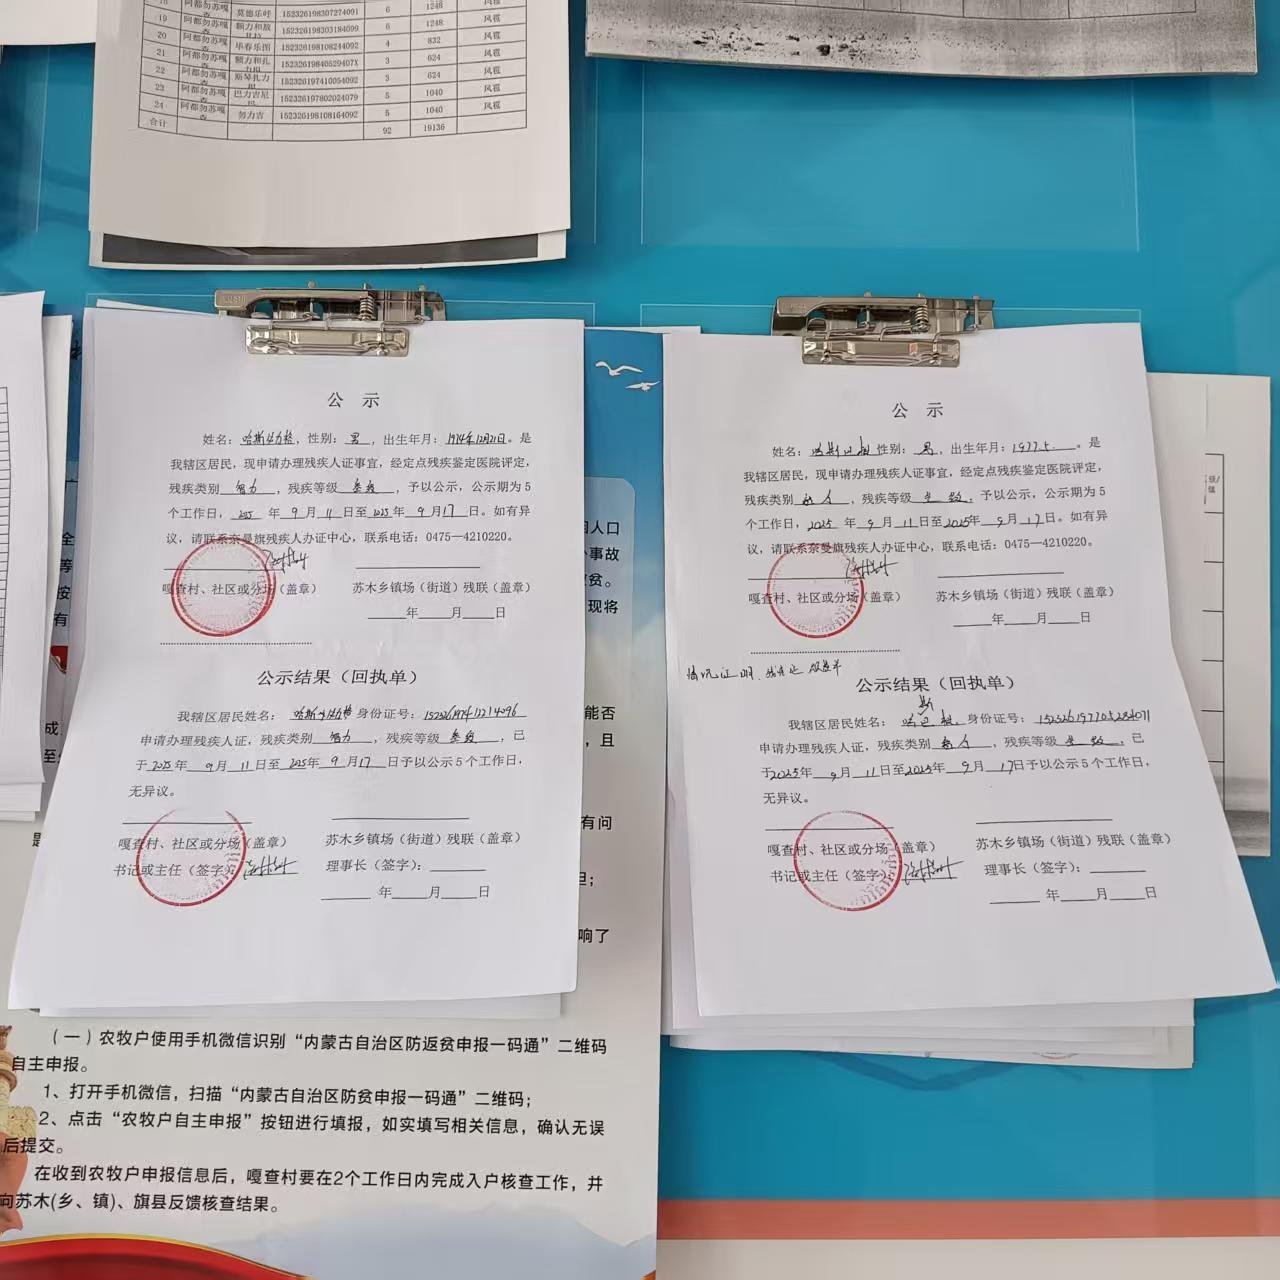 19 莫德乐呼 152326198307274091 6 1248 风雹
20 152326198303184099 6 1248 风雹
21 毕春乐图 152326198108244092 4 832 风雹
22 15232619840529407X 3 624 风雹
23 152326197410054092 3 624 风雹
24 152326197802024079 5 1040 风雹
勿力吉 152326198108164092 5 1040 风雹
合计 92 19136
公 示
姓名：，性别：男，出生年月：1974年12月21日。是
我辖区居民，现申请办理残疾人证事宜，经定点残疾鉴定医院评定，
残疾类别 智力，残疾等级 叁级，予以公示，公示期为5
个工作日，2025 年 9 月 11 日至 2025 年 9 月 17 日。如有异
议，请联系奈曼旗残疾人办证中心，联系电话：0475—4210220。
嘎查村、社区或分场（盖章）
苏木乡镇场（街道）残联（盖章）
年 月 日
公示结果（回执单）
我辖区居民姓名： 身份证号：152326197412214096
申请办理残疾人证，残疾类别 智力，残疾等级 叁级，已
于2025年 9 月 11 日至 2025年 9 月 17 日予以公示5个工作日，
无异议。
嘎查村、社区或分场（盖章）
书记或主任（签字）：
苏木乡镇场（街道）残联（盖章）
理事长（签字）：
年 月 日
公 示
姓名： 性别：男，出生年月：1977.5。是
我辖区居民，现申请办理残疾人证事宜，经定点残疾鉴定医院评定，
残疾类别，残疾等级，予以公示，公示期为5
个工作日，2025 年 9 月 11 日至2025年 9 月 17 日。如有异
议，请联系奈曼旗残疾人办证中心，联系电话：0475—4210220。
嘎查村、社区或分场（盖章）
苏木乡镇场（街道）残联（盖章）
年 月 日
情况证明、
公示结果（回执单）
我辖区居民姓名： 身份证号：152326197705284071
申请办理残疾人证，残疾类别，残疾等级，已
于2025年 9 月 11 日至2025年 9 月 17日予以公示5个工作日，
无异议。
嘎查村、社区或分场（盖章）
书记或主任（签字）：
苏木乡镇场（街道）残联（盖章）
理事长（签字）：
年 月 日
人口
事故
贫。
现将
能否
，且
有问
响了
（一）农牧户使用手机微信识别“内蒙古自治区防返贫申报一码通”二维码
自主申报。
1、打开手机微信，扫描“内蒙古自治区防贫申报一码通”二维码；
2、点击“农牧户自主申报”按钮进行填报，如实填写相关信息，确认无误
后提交。
在收到农牧户申报信息后，嘎查村要在2个工作日内完成入户核查工作，并
向苏木(乡、镇)、旗县反馈核查结果。